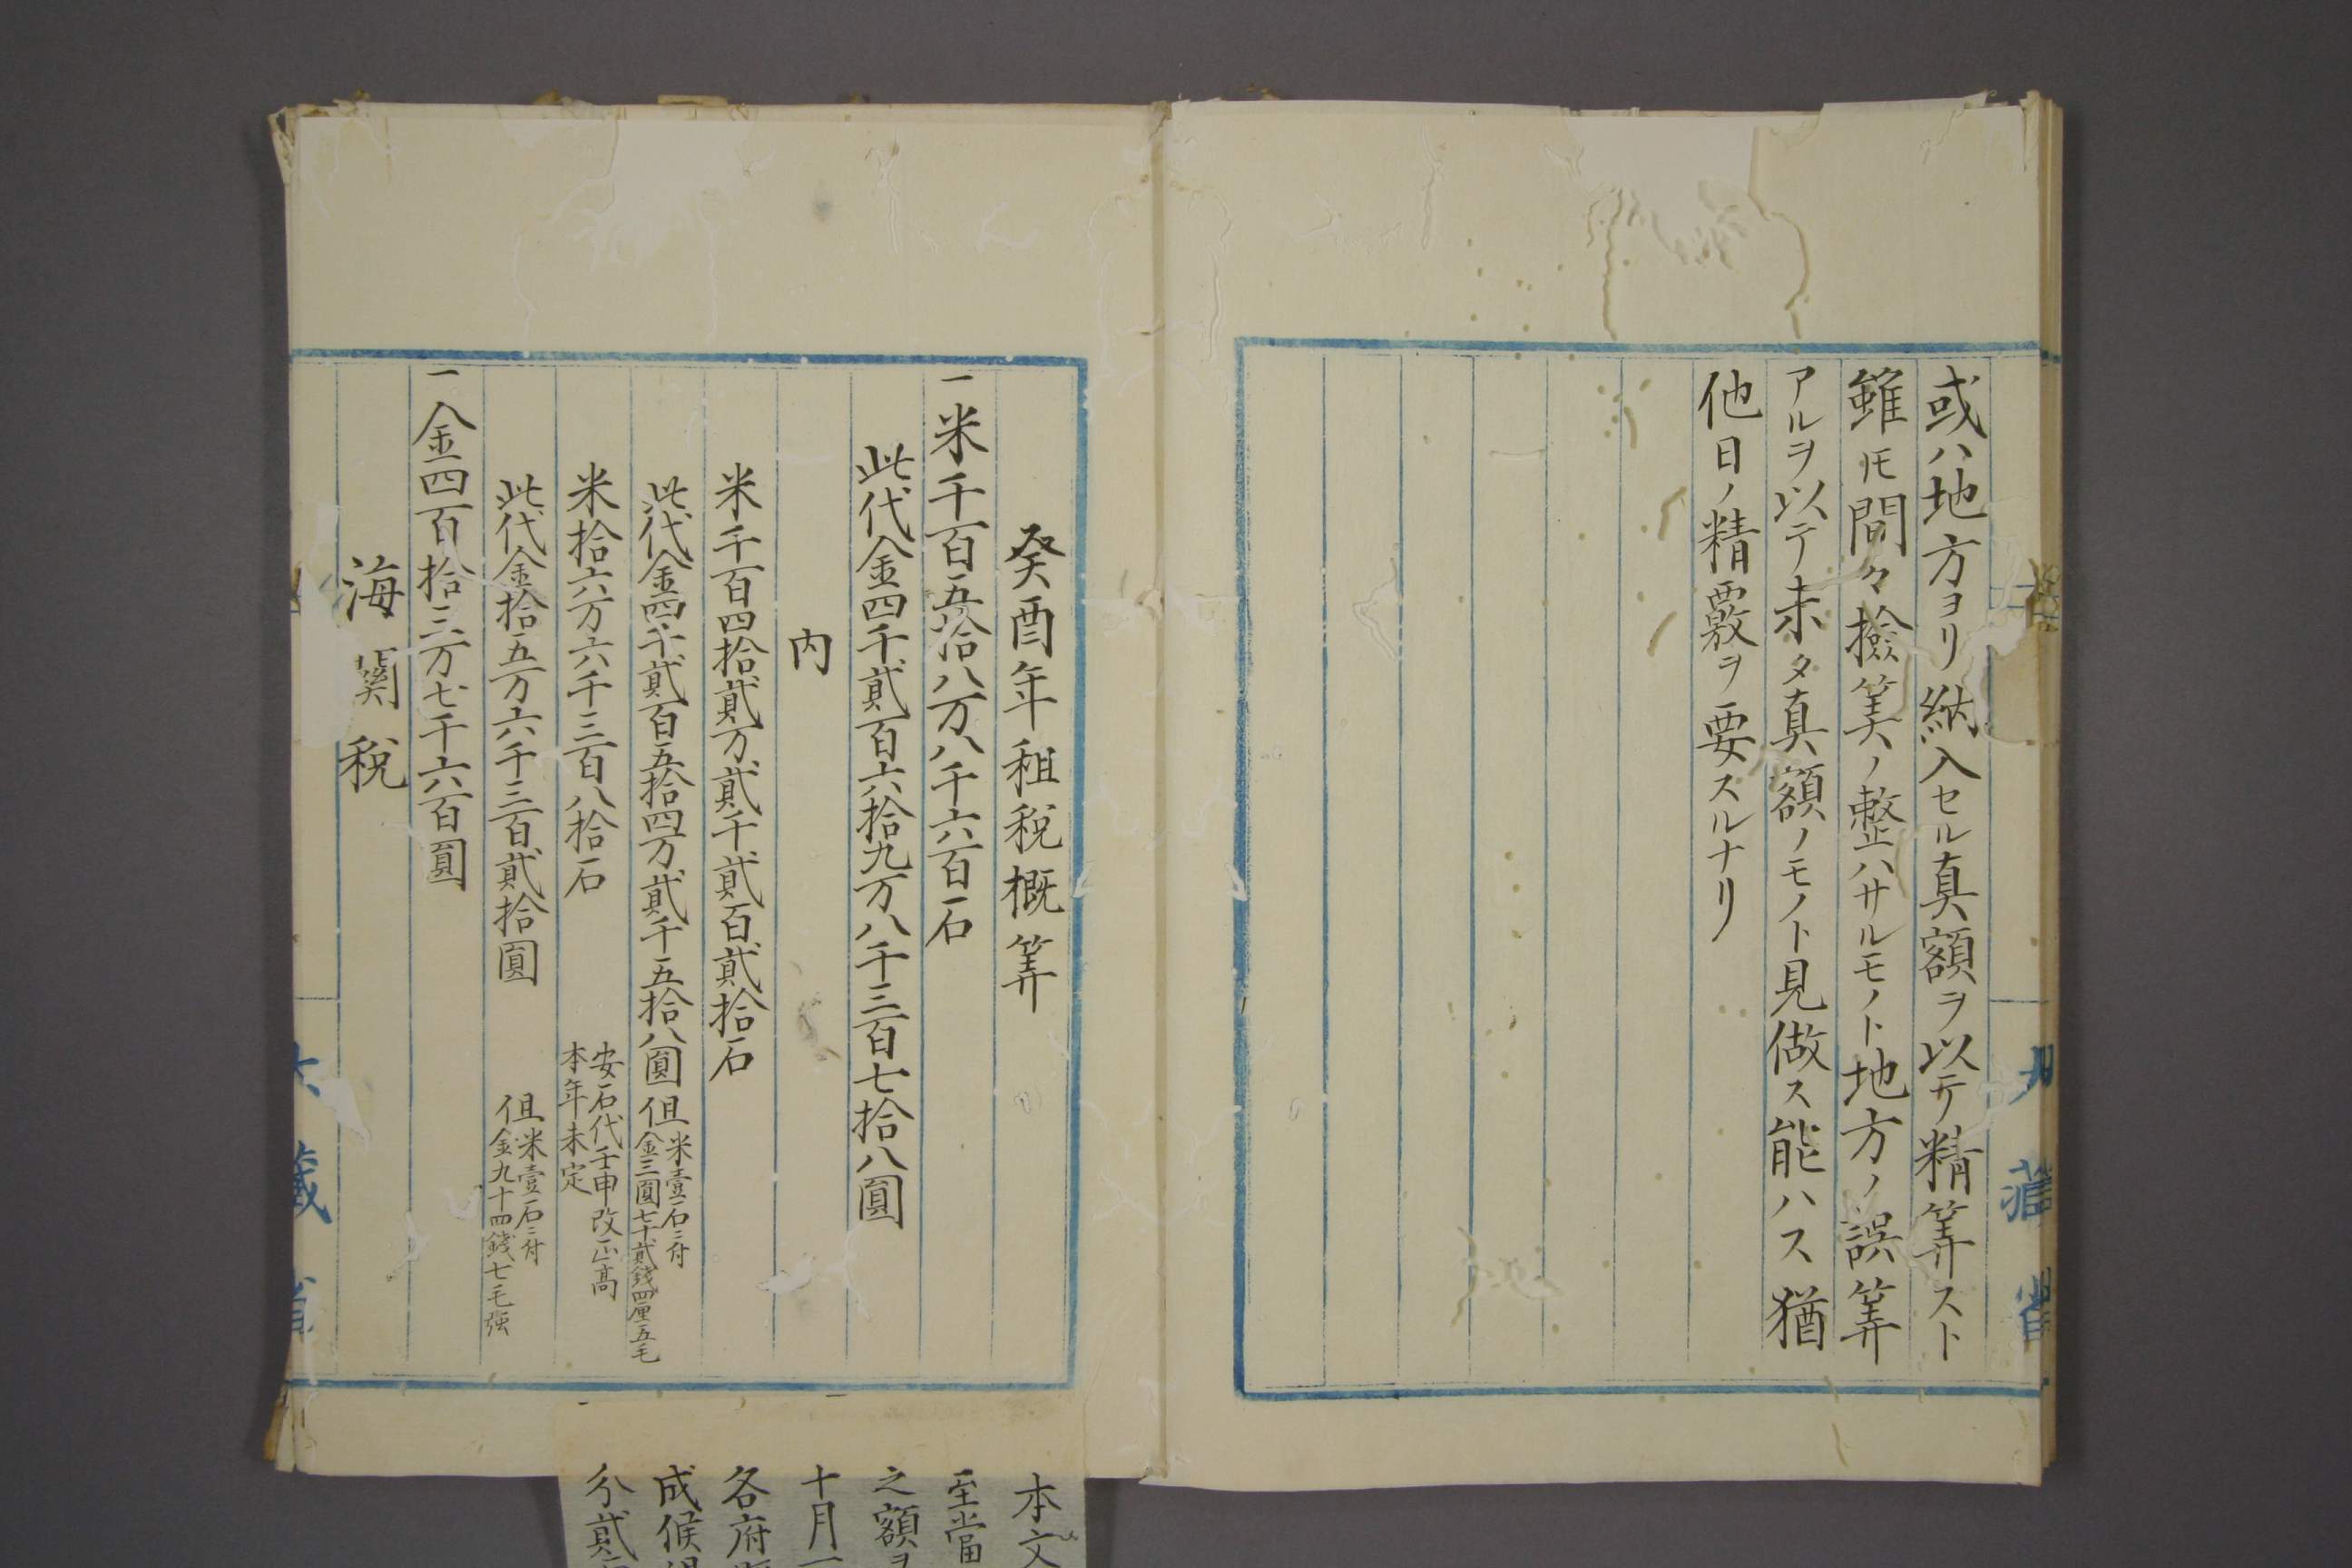 或ハ地方ヨリ納入セル真額ヲ以テ精筭スト
雖𪜈間々撿筭ノ整ハサルモノト地方ノ誤筭
アルヲ以テ未タ真額ノモノト見做ス能ハス猶
他日ノ精覈ヲ要スルナリ
癸酉年租税概筭
一米千百五拾八万八千六百石
此代金四千貳百六拾九万八千三百七拾八圓
内
米千百四拾貳万貳千貳百貳拾石
此代金四千貳百五拾四万貳千五拾八圓 但米壹石ニ付金三圓七十貳錢四厘五毛
米拾六万六千三百八拾石 安石代壬申改正高本年未定
此代金拾五万六千三百貳拾圓 但米壹石ニ付金九十四錢七毛強
一金四百拾三万七千六百圓
海関税
大藏省
本文
至當
之額ヲ
十月一
各府
成候
分貳